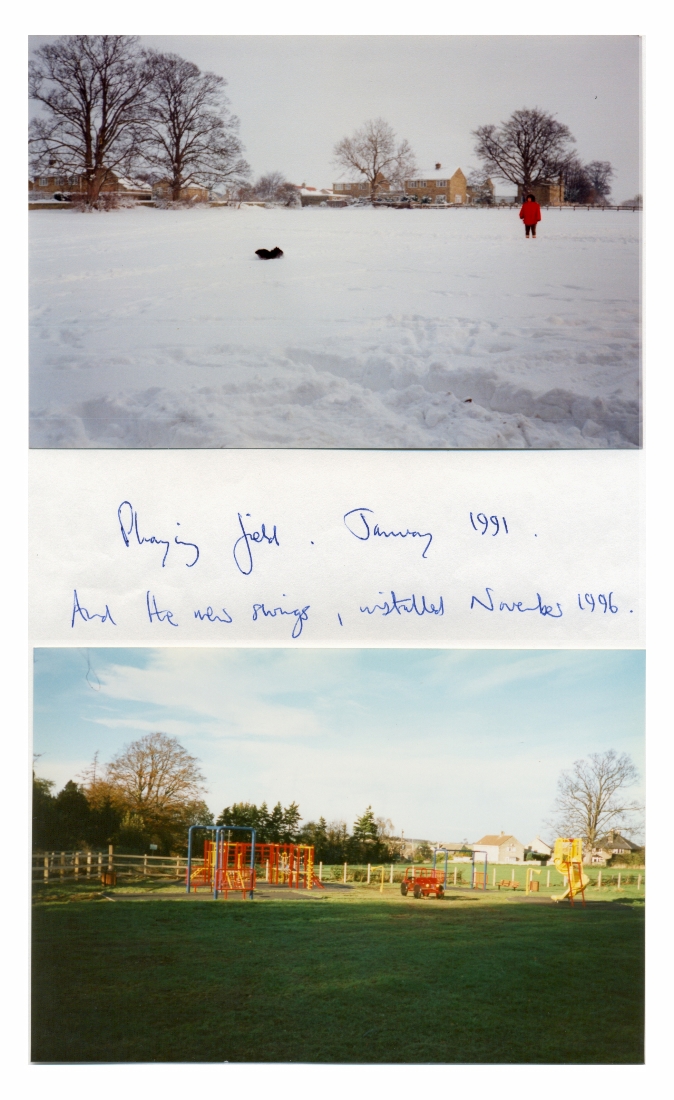 Playing field. January 1991.
And the new swings, installed November 1996.